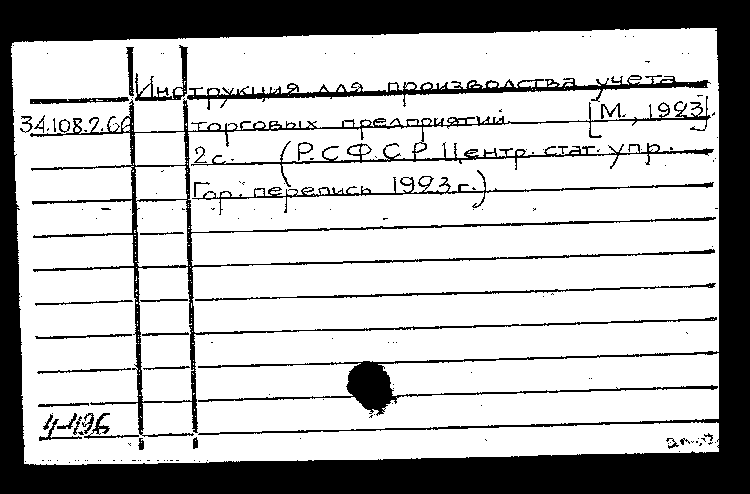 Инструкция для производства учета
34.108.2.66 торговых предприятий. [М., 1923].
2 с. (Р.С.Ф.С.Р. Центр. стат. упр.
Гор. перепись 1923 г.).
4-496